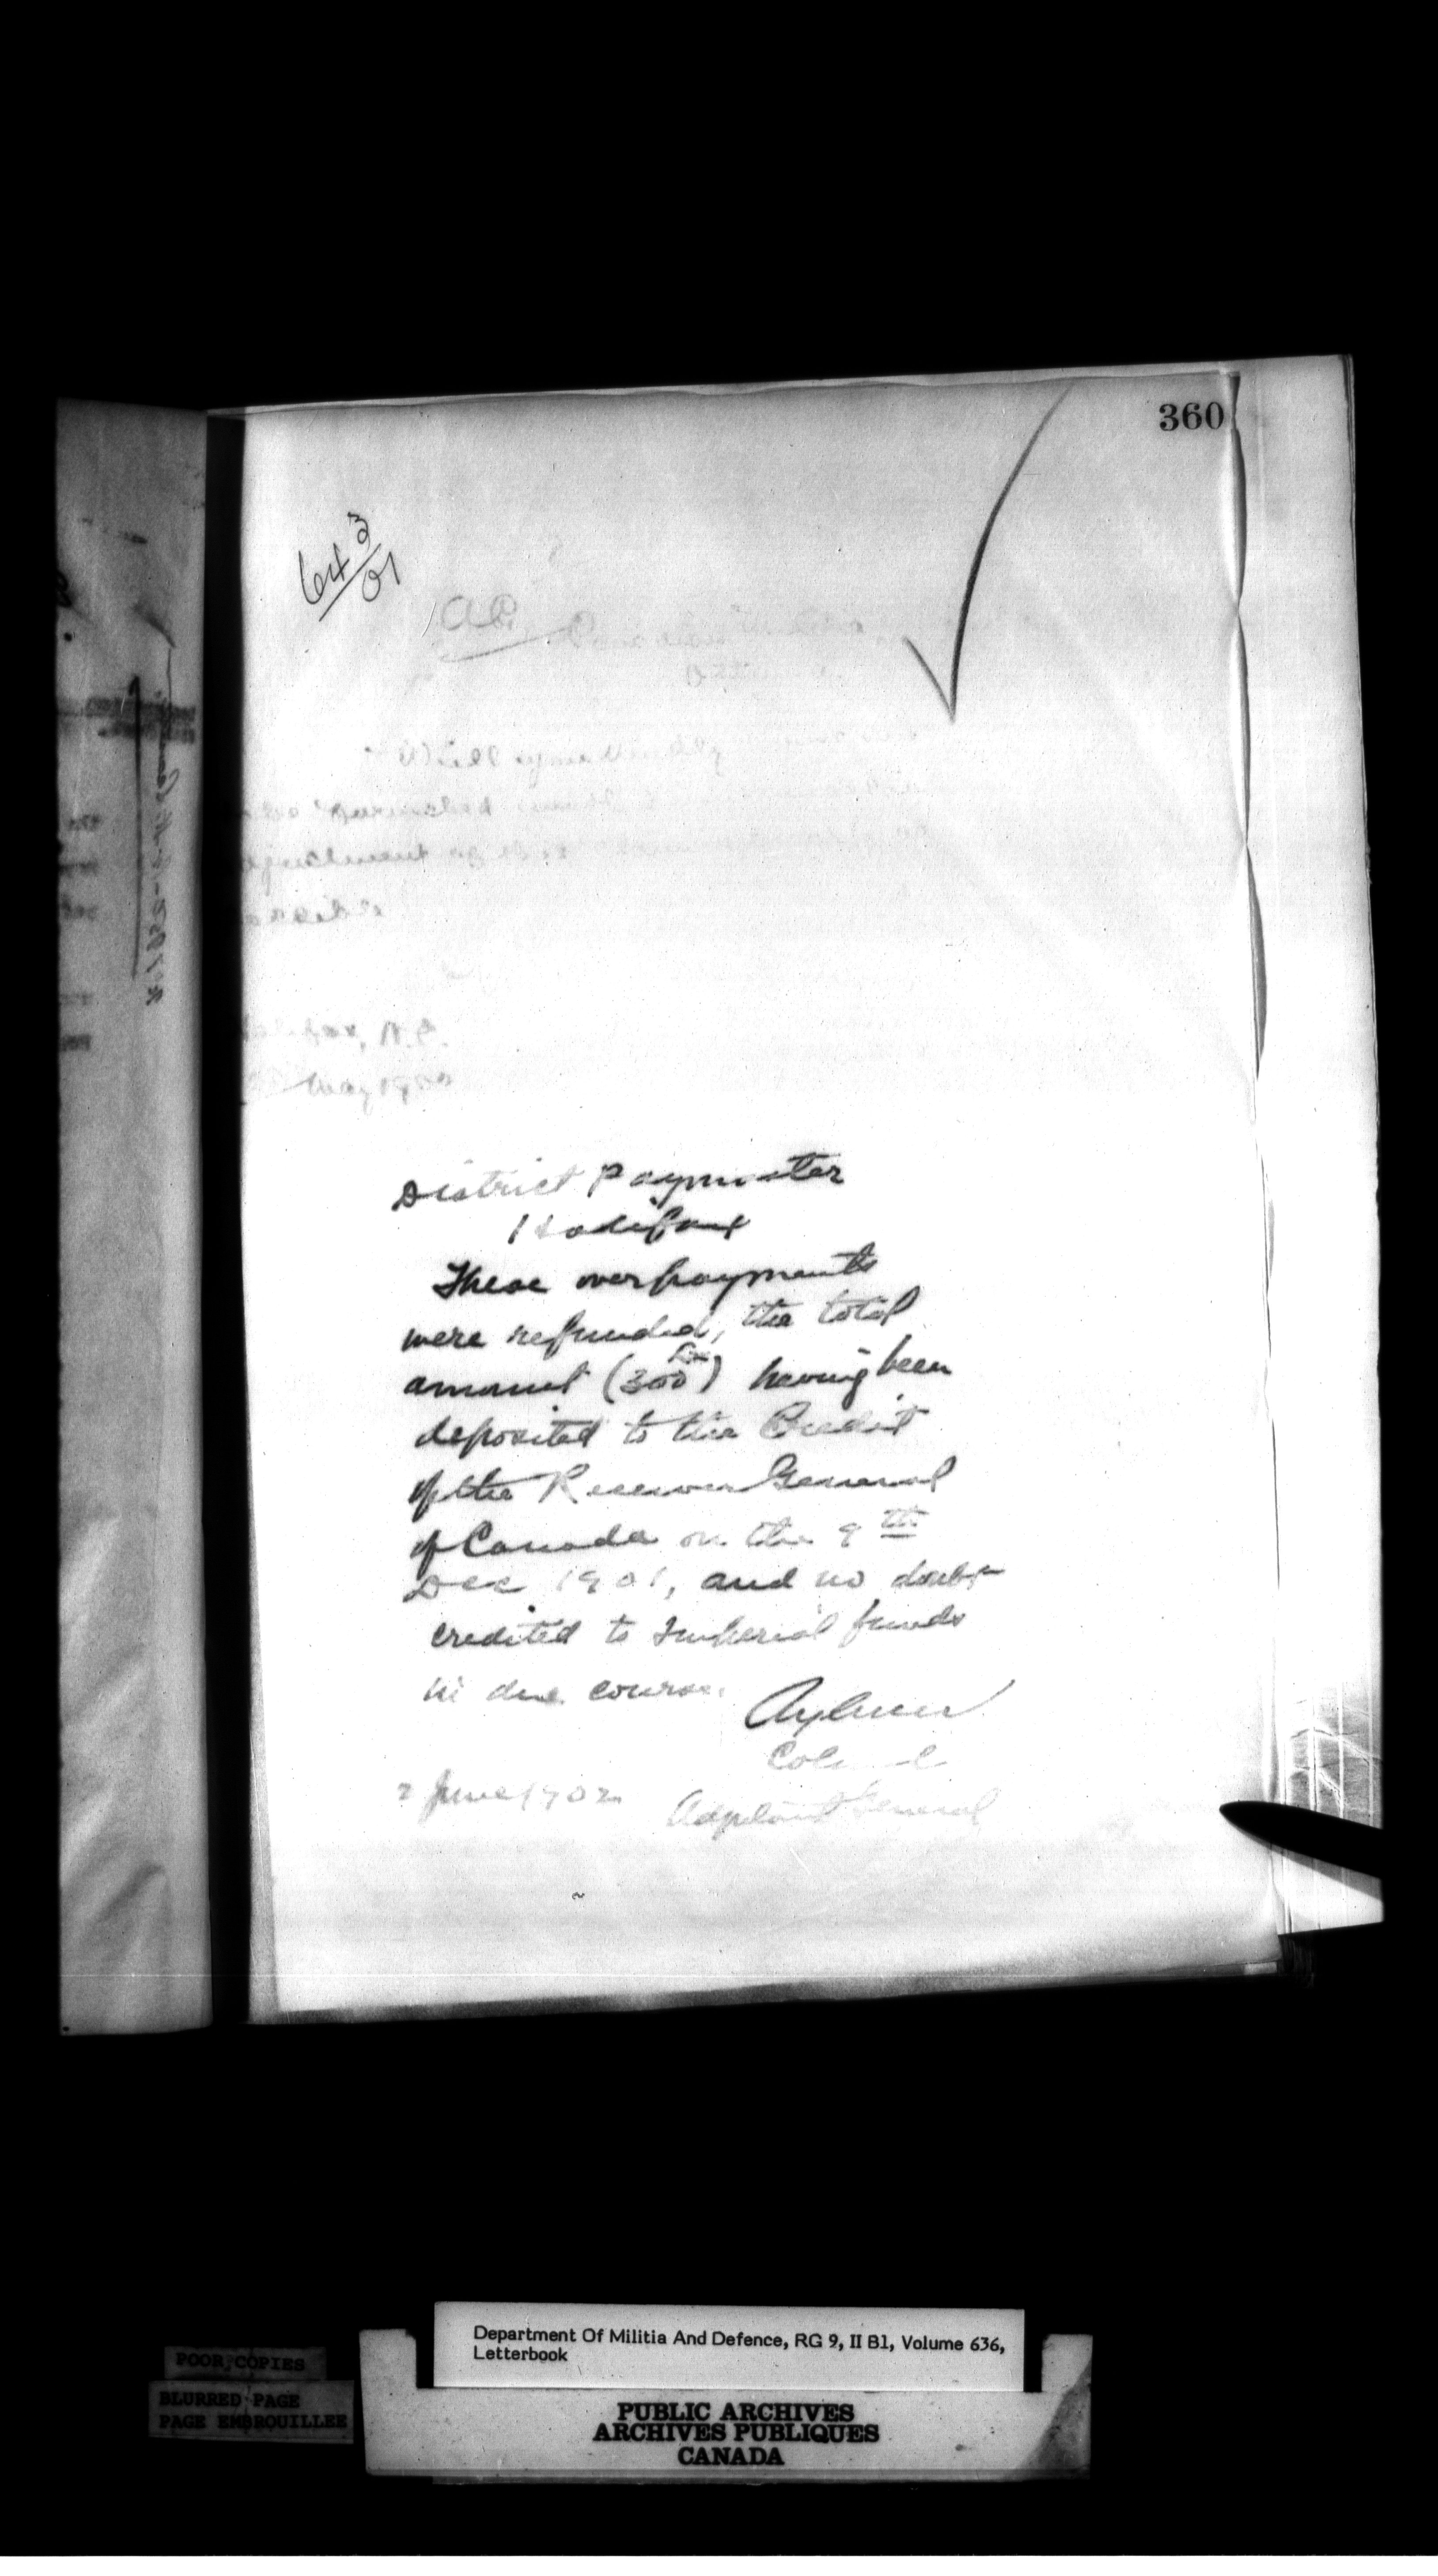 360
64 3/01
District Paymaster
Halifax
These overpayments
were refunded, the total
amount (300) having been
deposited to the Credit
of the Receiver General
of Canada on the 9th
Dec 1901, and no doubt
credited to Imperial funds
in due course.
Aylmer
Colonel
2 June 1902 Adjutant General
Department Of Militia And Defence, RG 9, II B1, Volume 636,
Letterbook
POOR COPIES
BLURRED PAGE
PAGE EMBROUILLEE
PUBLIC ARCHIVES
ARCHIVES PUBLIQUES
CANADA